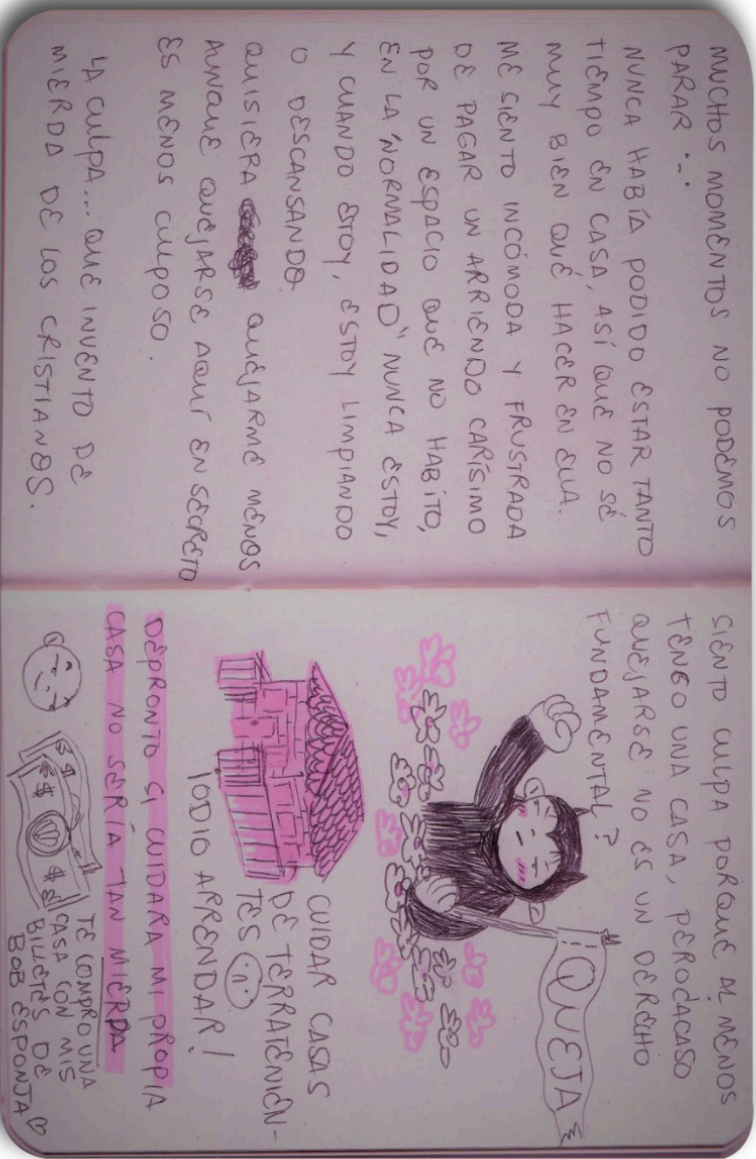 MUCHOS MOMENTOS NO PODEMOS
PARAR ∵
NUNCA HABÍA PODIDO ESTAR TANTO
TIEMPO EN CASA, ASÍ QUE NO SÉ
MUY BIEN QUÉ HACER EN ELLA.
ME SIENTO INCÓMODA Y FRUSTRADA
DE PAGAR UN ARRIENDO CARÍSIMO
POR UN ESPACIO QUE NO HABITO,
EN LA "NORMALIDAD" NUNCA ESTOY,
Y CUANDO ESTOY, ESTOY LIMPIANDO
O DESCANSANDO.
QUISIERA QUEJARME MENOS
AUNQUE QUEJARSE AQUÍ EN SECRETO
ES MENOS CULPOSO.
LA CULPA... QUE INVENTO DE
MIERDA DE LOS CRISTIANOS.
SIENTO CULPA PORQUE AL MENOS
TENGO UNA CASA, PERO ¿ACASO
QUEJARSE NO ES UN DERECHO
FUNDAMENTAL?
QUEJA
CUIDAR CASAS
DE TERRATENIEN-
TES
¡ODIO ARRENDAR!
DEPRONTO SI CUIDARA MI PROPIA
CASA NO SERÍA TAN MIERDA
$ $ $ $
TE COMPRO UNA
CASA CON MIS
BILLETES DE
BOB ESPONJA ♡